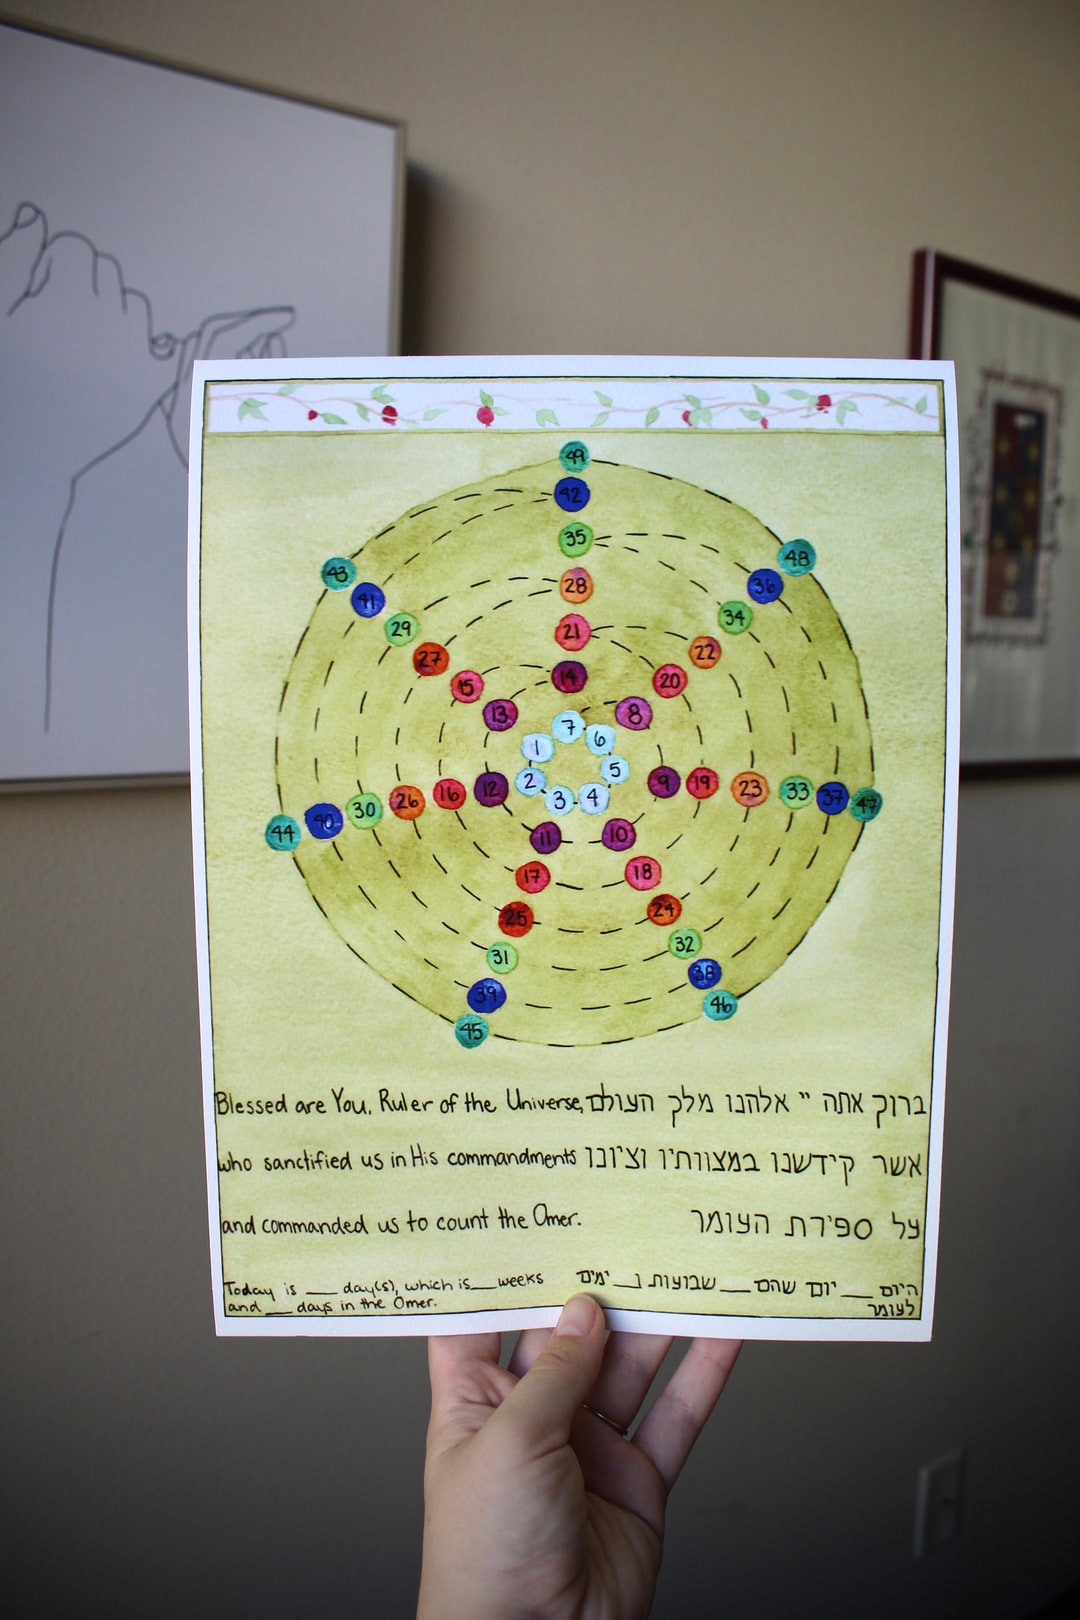 49
42
35
28
21
14
7
43
41
29
27
15
13
1
48
36
34
22
20
8
6
44
40
30
26
16
12
2
5
9
19
23
33
37
47
3
11
17
25
31
39
45
4
10
18
24
32
38
46
Blessed are You, Ruler of the Universe,
who sanctified us in His commandments
and commanded us to count the Omer.
Today is ___ day(s), which is ___ weeks
and ___ days in the Omer.
ברוך אתה יי אלהנו מלך העולם
אשר קידשנו במצוותיו וציונו
על ספירת העומר
היום ___ יום שהם ___ שבועות ו___ ימים
לעומר